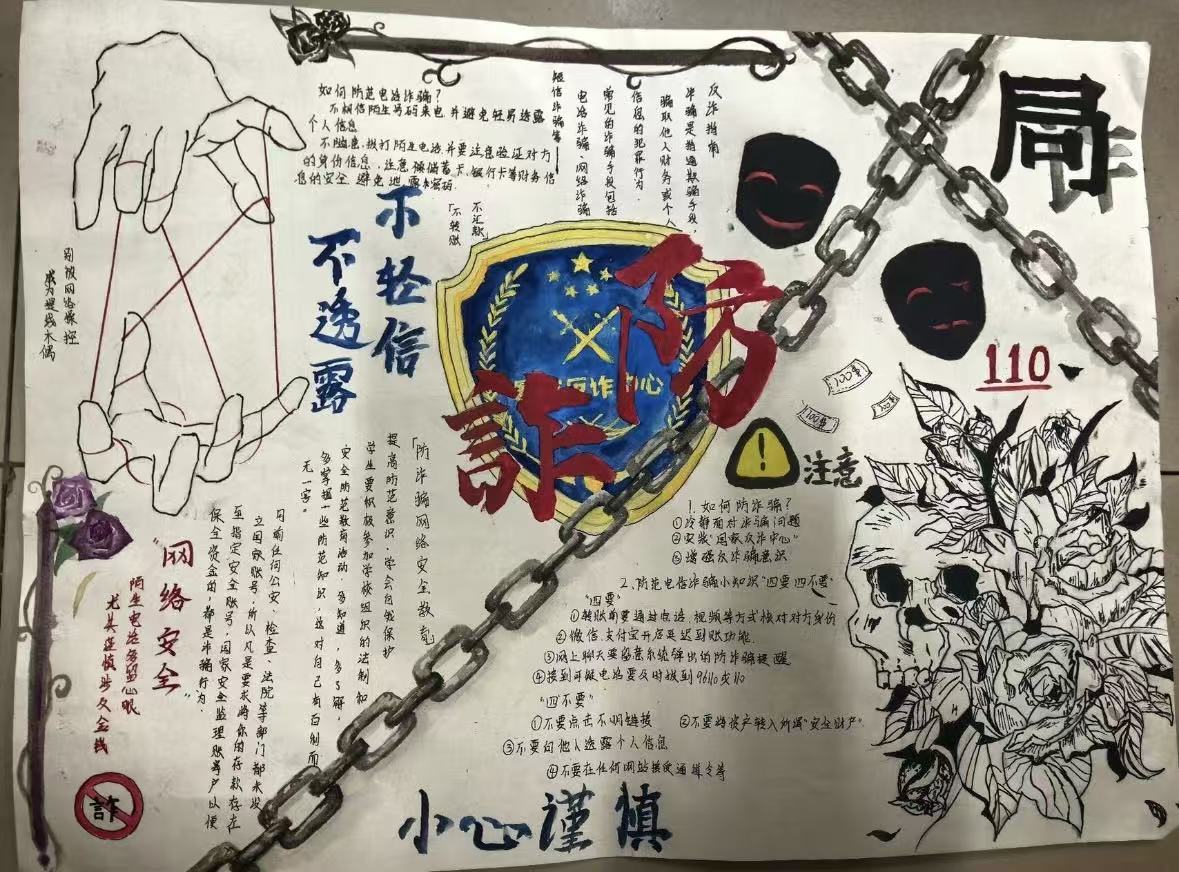 如何防范电话诈骗？
不相信陌生号码来电并避免轻易透露
个人信息
不随意拨打陌生电话并要注意验证对方
的身份信息，注意保储蓄卡、银行卡等财务信
息的安全避免泄露和盗窃.
反诈指南
诈骗是指通欺骗手段，
骗取他人财务或个人
信息的犯罪行为
常见的诈骗手段包括
电话诈骗、网络诈骗
短信诈骗等
局
诈
110
100$
100$
100$
不轻信
不透露
不汇款」
「不转账
别被网络操控
成为提线木偶
反诈中心
防
詐
注意
「防诈骗网络安全教育」
提高防范意识，学会自我保护
学生要积极参加学校组织的法制和
安全防范教育活动，多知道，多了解，
多掌握一些防范知识，这对自己有百利而
无一害"
"网络安全"
陌生电话务留心眼
尤其谨慎涉及金钱
目前任何公安、检查、法院等部门都未设
立国账账号，所以凡是要求将你的存款存在
至指定安全账号，国家安全监理账号户以便
保全资金的，都是诈骗行为.
詐
1. 如何防诈骗？
①冷静面对诈骗问题
②安装"国家反诈中心"
③增强反诈骗意识
2、防范电信诈骗小知识"四要四不要"
"四要"
①转账前要通过电话、视频等方式核对对方身份
②微信、支付宝开启延迟到账功能
③网上聊天要留意系统弹出的防诈骗提醒
④接到可疑电话要及时拨到96110或110
"四不要"
①不要点击不明链接 ②不要将资产转入所谓"安全财产"
③不要向他人透露个人信息
④不要在任何网站接收通缉令等
小心谨慎